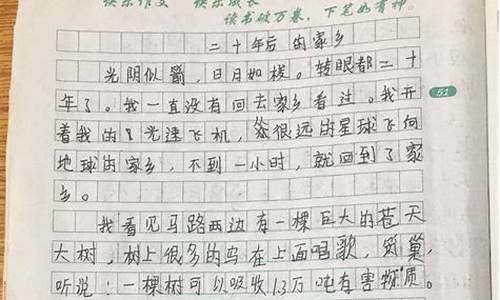 快乐作文 快乐成长
读书破万卷,下笔如有神
二十年后的家乡
光阴似箭,日月如梭。转眼都二十
年了。我一直没有回去家乡看过。我开
着我的光速飞机,从很远的星球飞向
地球的家乡,不到一小时,就回到了家
乡。
51
我看见马路两边有一棵巨大的苍天
大树,树上很多的鸟在上面唱歌,筑巢,
听说:一棵树可以吸收13万吨有害物质。